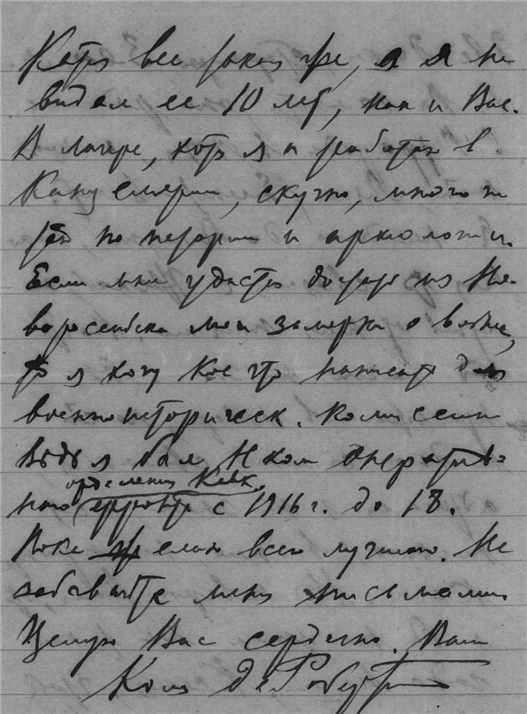 Катя все такая же, а я не
видал ее 10 лет, как и Вас.
В лагере, хотя я и работаю в
Канцелярии, скучно, много
по истории и археологии.
Если мне удастся достать из Но-
вороссийска мои заметки о войне,
то я хочу кое что написать для
военноисторическ. комиссии
Ведь я был Нком оперативно-
отделения Кавк.
наго фронта с 1916 г. до 18.
Пока желаю всего лучшего. Не
забывайте меня письмами
Целую Вас сердечно. Ваш
Коля де Роберти